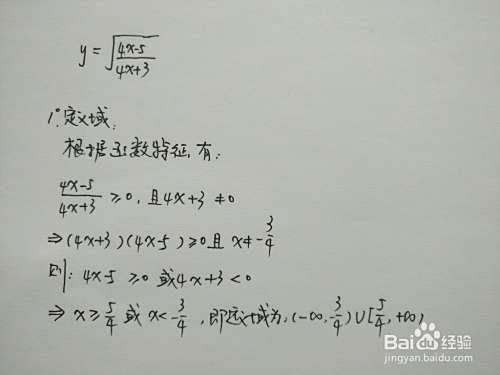 y = √((4x-5)/(4x+3))
1°定义域:
根据函数特征,有:
(4x-5)/(4x+3) ≥0,且4x+3 ≠0
⇒(4x+3)(4x-5)≥0且 x≠-3/4
则: 4x-5 ≥0 或4x+3<0
⇒ x≥5/4 或 x<-3/4 , 即定义域为:(-∞,-3/4)∪[5/4,+∞)
Baidu 经验
jingyan.baidu.com